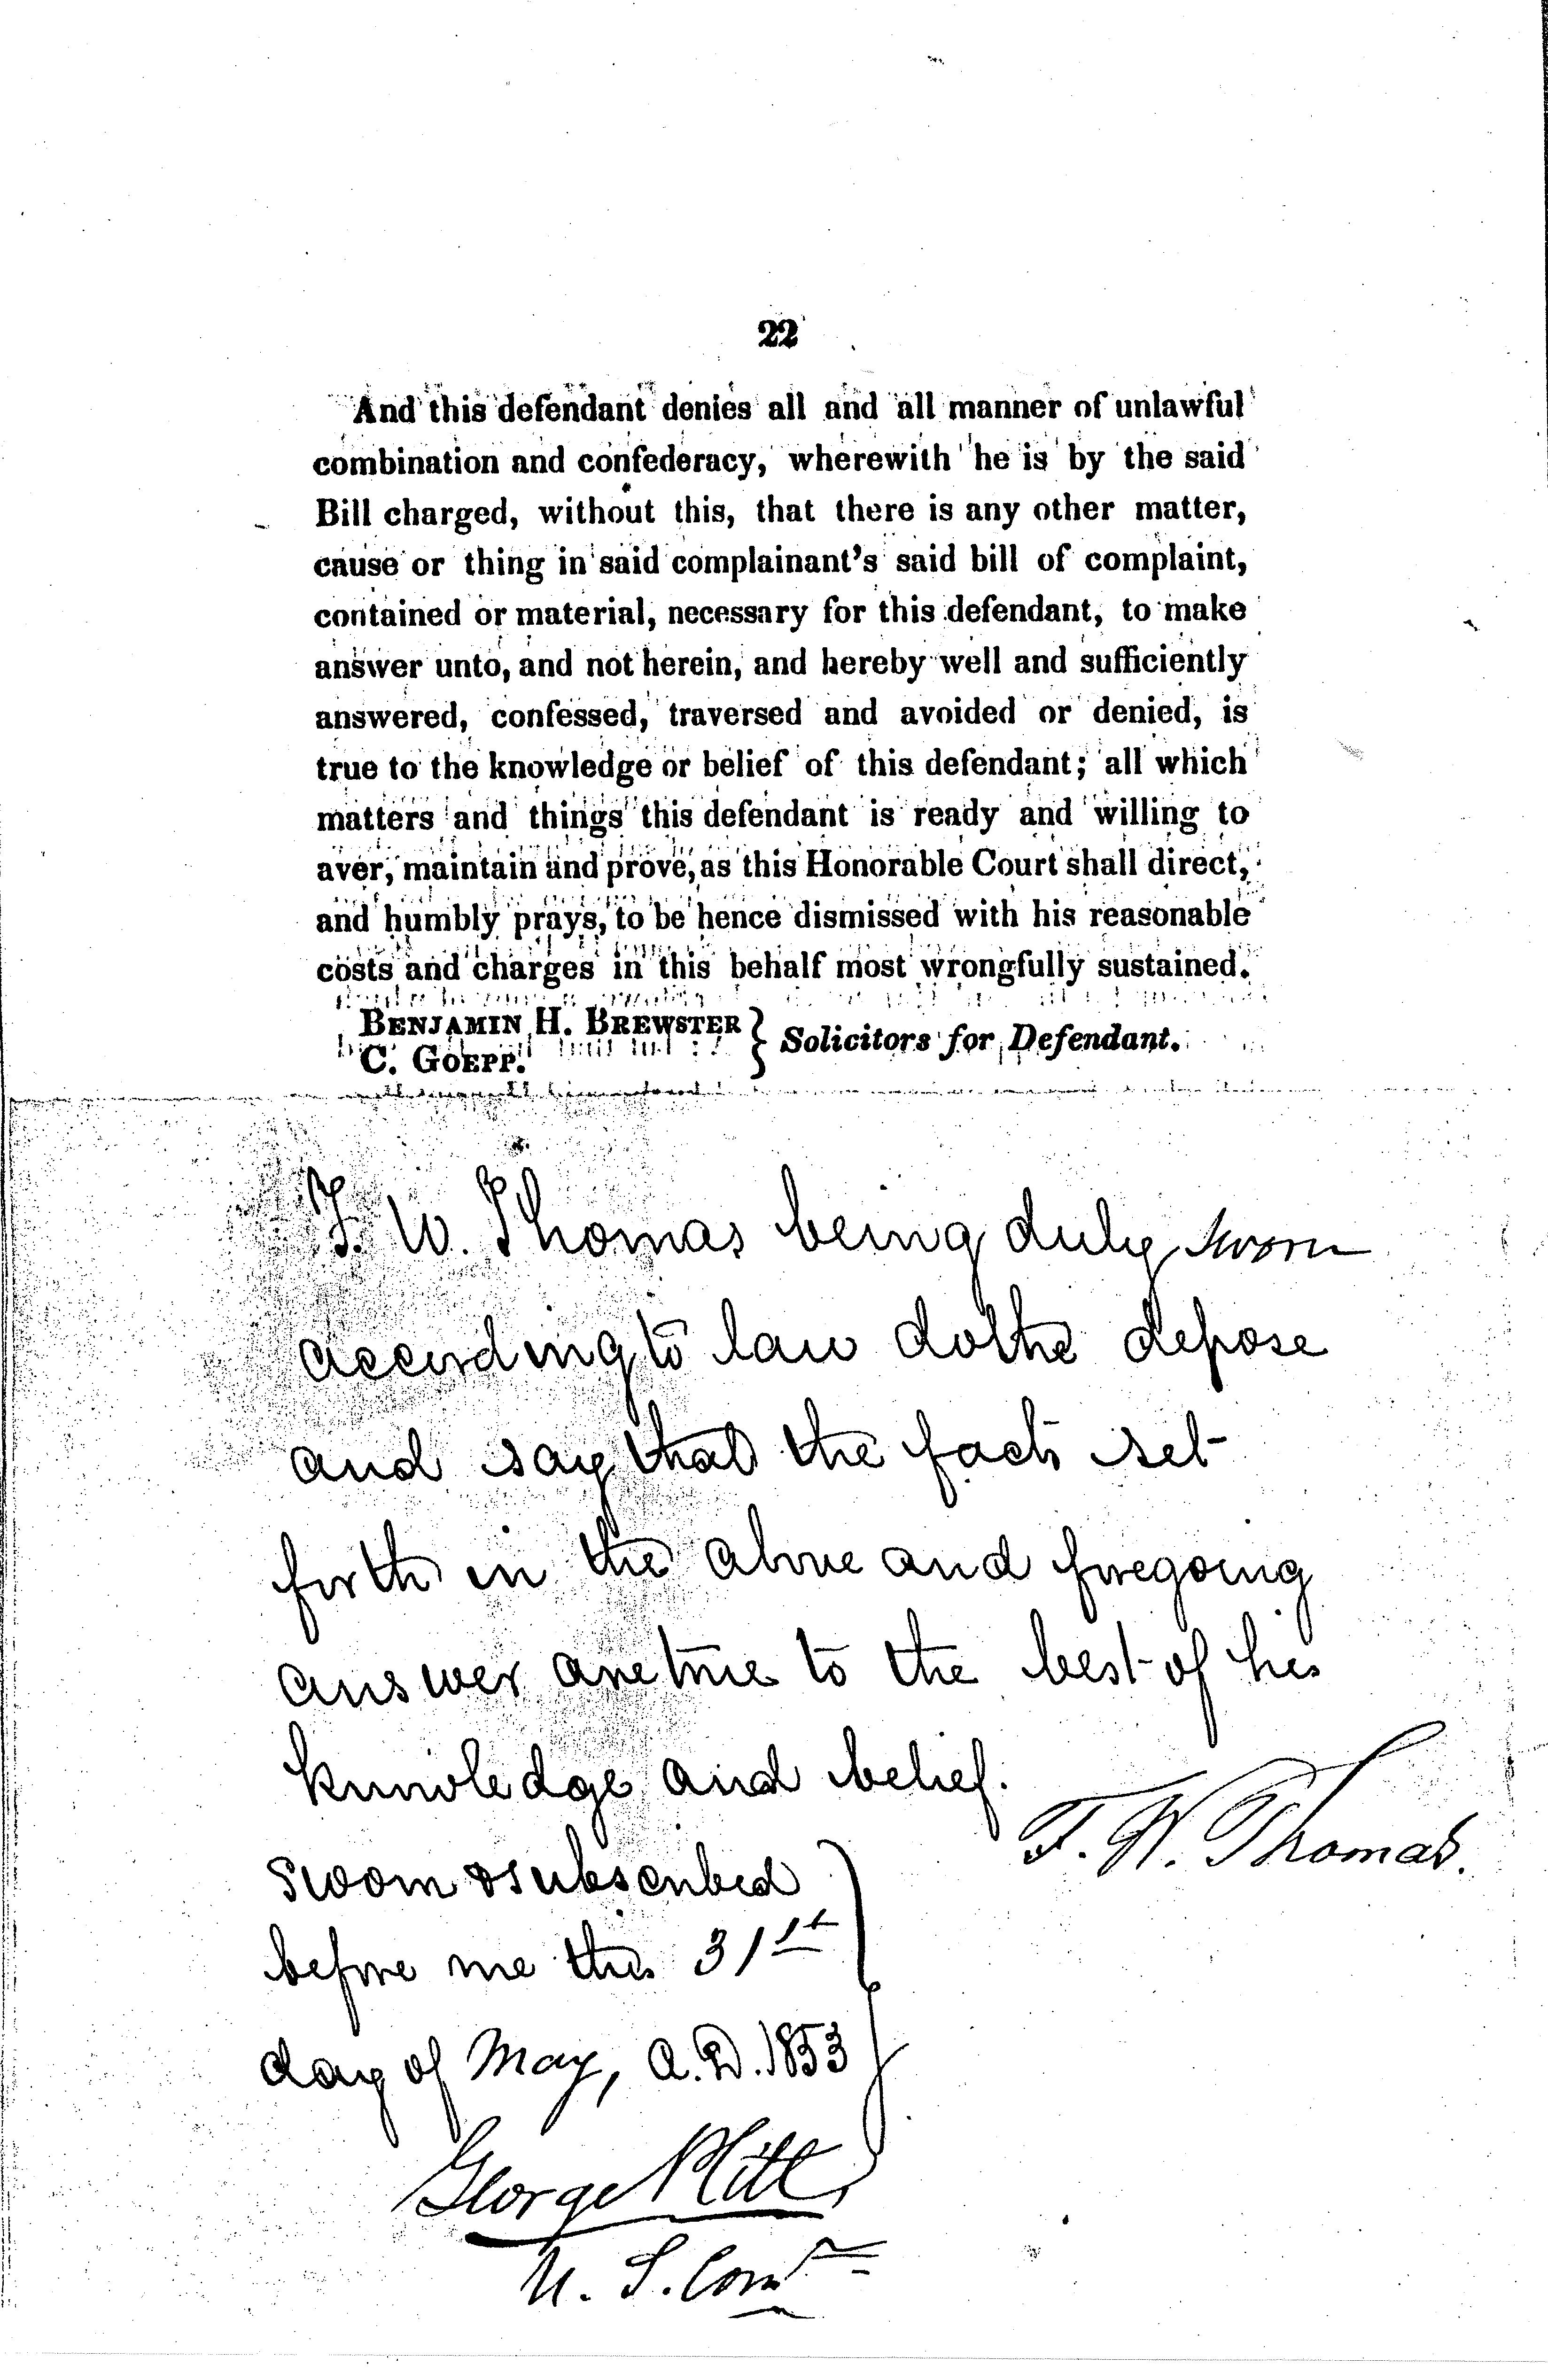 22
And this defendant denies all and all manner of unlawful
combination and confederacy, wherewith he is by the said
Bill charged, without this, that there is any other matter,
cause or thing in said complainant's said bill of complaint,
contained or material, necessary for this defendant, to make
answer unto, and not herein, and hereby well and sufficiently
answered, confessed, traversed and avoided or denied, is
true to the knowledge or belief of this defendant; all which
matters and things this defendant is ready and willing to
aver, maintain and prove, as this Honorable Court shall direct,
and humbly prays, to be hence dismissed with his reasonable
costs and charges in this behalf most wrongfully sustained.
BENJAMIN H. BREWSTER
C. GOEPP.
} Solicitors for Defendant.
F. W. Thomas being duly sworn
according to law dothe depose
and say that the facts set
forth in the above and foregoing
answer are true to the best of his
knowledge and belief.
F. W. Thomas.
Sworn & subscribed
before me this 31st
day of May, A.D. 1853
George Plitt
U. S. Comr